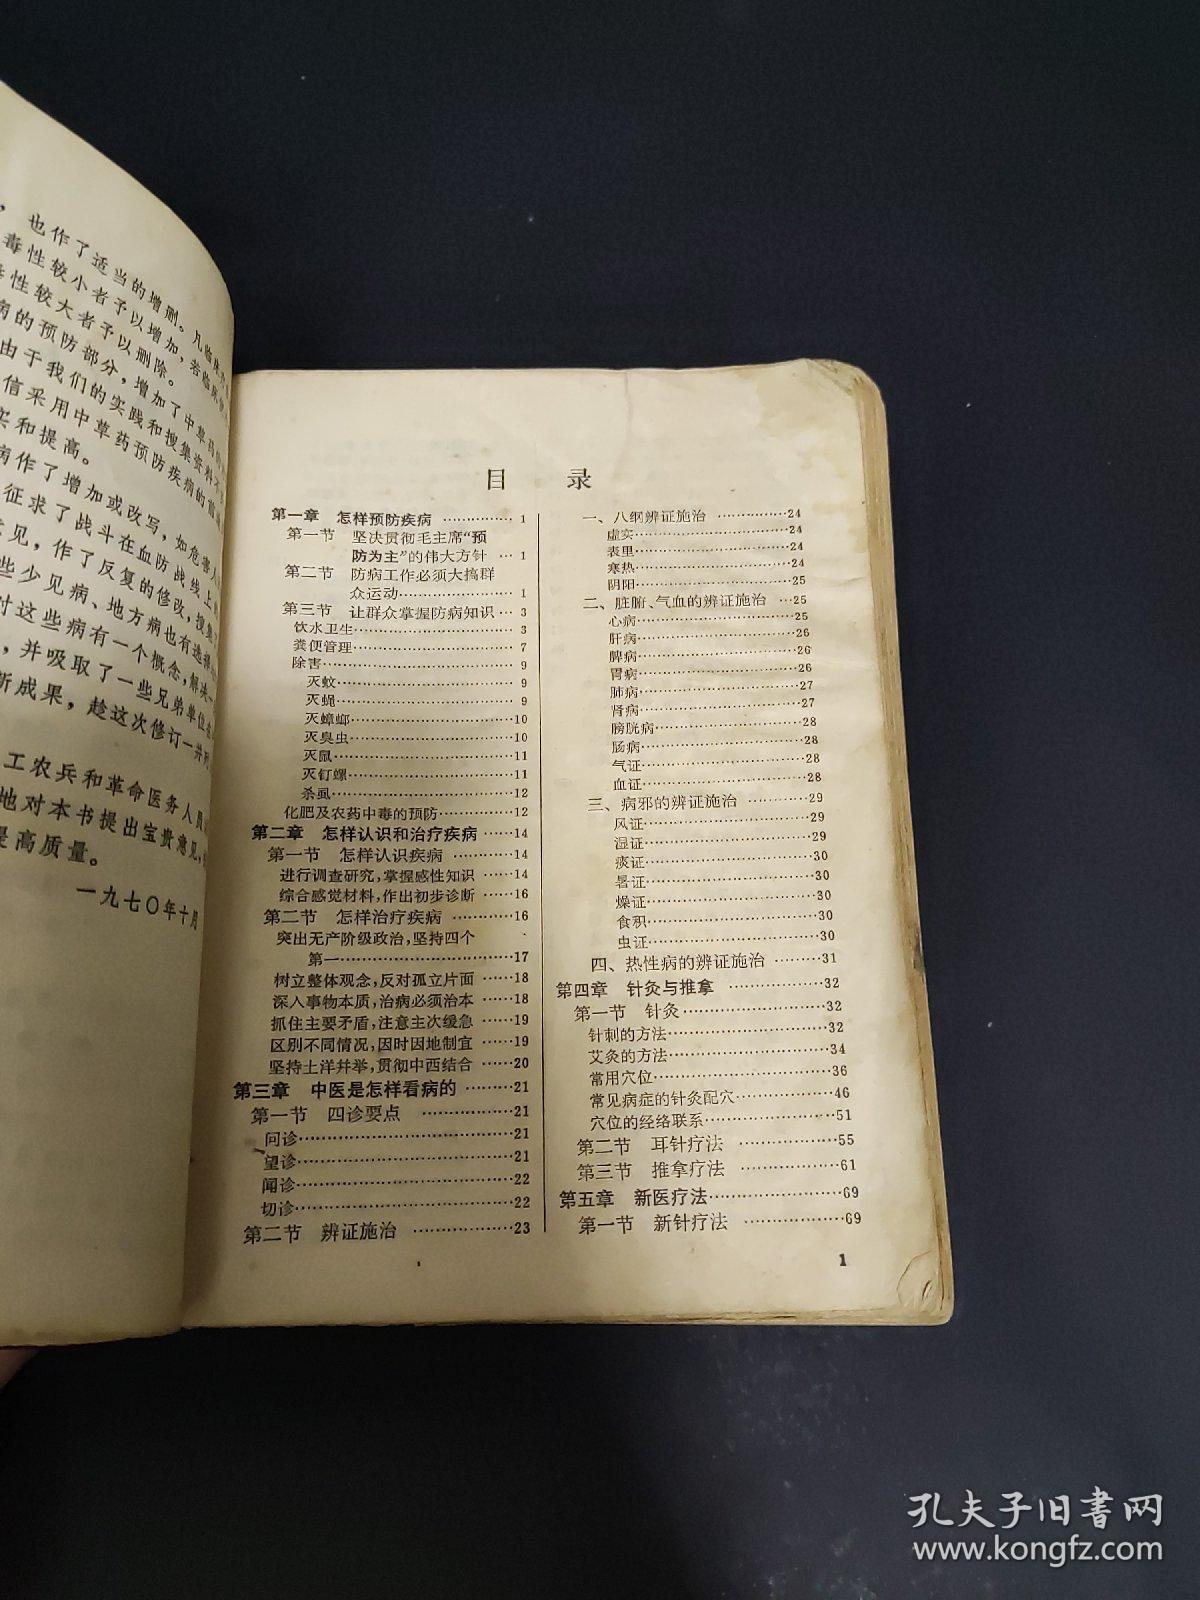 也作了适当的增删。凡临床
毒性较小者予以增加，若临床
性较大者予以删除。
病的预防部分，增加了中草药
由于我们的实践和搜集资料不
信采用中草药预防疾病的
实和提高。
病作了增加或改写，如危害人
征求了战斗在血防战线上
意见，作了反复的修改，搜集
些少见病、地方病也有选择
对这些病有一个概念，解决一
，并吸取了一些兄弟单位
新成果，趁这次修订一并
工农兵和革命医务人员
地对本书提出宝贵意见，
提高质量。
一九七〇年十月
目 录
第一章 怎样预防疾病 ……………1
第一节 坚决贯彻毛主席“预
防为主”的伟大方针 …1
第二节 防病工作必须大搞群
众运动……………………1
第三节 让群众掌握防病知识 …3
饮水卫生……………………………3
粪便管理……………………………7
除害…………………………………9
灭蚊………………………………9
灭蝇………………………………9
灭蟑螂……………………………10
灭臭虫……………………………10
灭鼠………………………………11
灭钉螺……………………………11
杀虱………………………………12
化肥及农药中毒的预防……………12
第二章 怎样认识和治疗疾病……14
第一节 怎样认识疾病 …………14
进行调查研究，掌握感性知识 ……14
综合感觉材料，作出初步诊断 ……16
第二节 怎样治疗疾病 …………16
突出无产阶级政治，坚持四个
第一………………………………17
树立整体观念，反对孤立片面 ……18
深入事物本质，治病必须治本 ……18
抓住主要矛盾，注意主次缓急 ……19
区别不同情况，因时因地制宜 ……19
坚持土洋并举，贯彻中西结合 ……20
第三章 中医是怎样看病的 ………21
第一节 四诊要点 ………………21
问诊…………………………………21
望诊…………………………………21
闻诊…………………………………22
切诊…………………………………22
第二节 辨证施治 ………………23
一、八纲辨证施治 ……………24
虚实………………………………24
表里………………………………24
寒热………………………………24
阴阳………………………………25
二、脏腑、气血的辨证施治 …25
心病………………………………25
肝病………………………………26
脾病………………………………26
胃病………………………………26
肺病………………………………27
肾病………………………………27
膀胱病……………………………28
肠病………………………………28
气证………………………………28
血证………………………………28
三、病邪的辨证施治 …………29
风证………………………………29
湿证………………………………29
痰证………………………………30
暑证………………………………30
燥证………………………………30
食积………………………………30
虫证………………………………30
四、热性病的辨证施治 ………31
第四章 针灸与推拿 ………………32
第一节 针灸……………………32
针刺的方法…………………………32
艾灸的方法…………………………34
常用穴位……………………………36
常见病症的针灸配穴………………46
穴位的经络联系……………………51
第二节 耳针疗法 ………………55
第三节 推拿疗法 ………………61
第五章 新医疗法……………………69
第一节 新针疗法 ………………69
1
孔夫子旧书网
www.kongfz.com